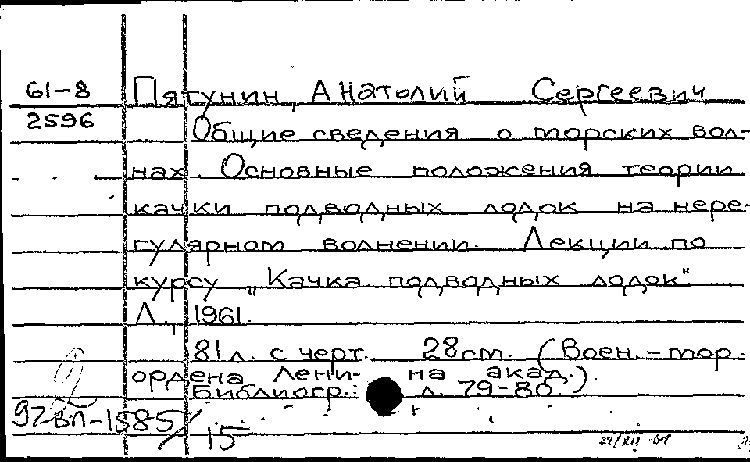 61-8 Пягунин, Анатолий Сергеевич
2596 Общие сведения о морских вол-
нах. Основные положения теории
качки подводных лодок на нере-
гулярном волнении. Лекции по
курсу „Качка подводных лодок"
Л., 1961.
81 л. с черт. 28 см. (Воен.-мор.
ордена Лени- на акад.).
Библиогр.: л. 79-80.
97-ВЛ-1585/15